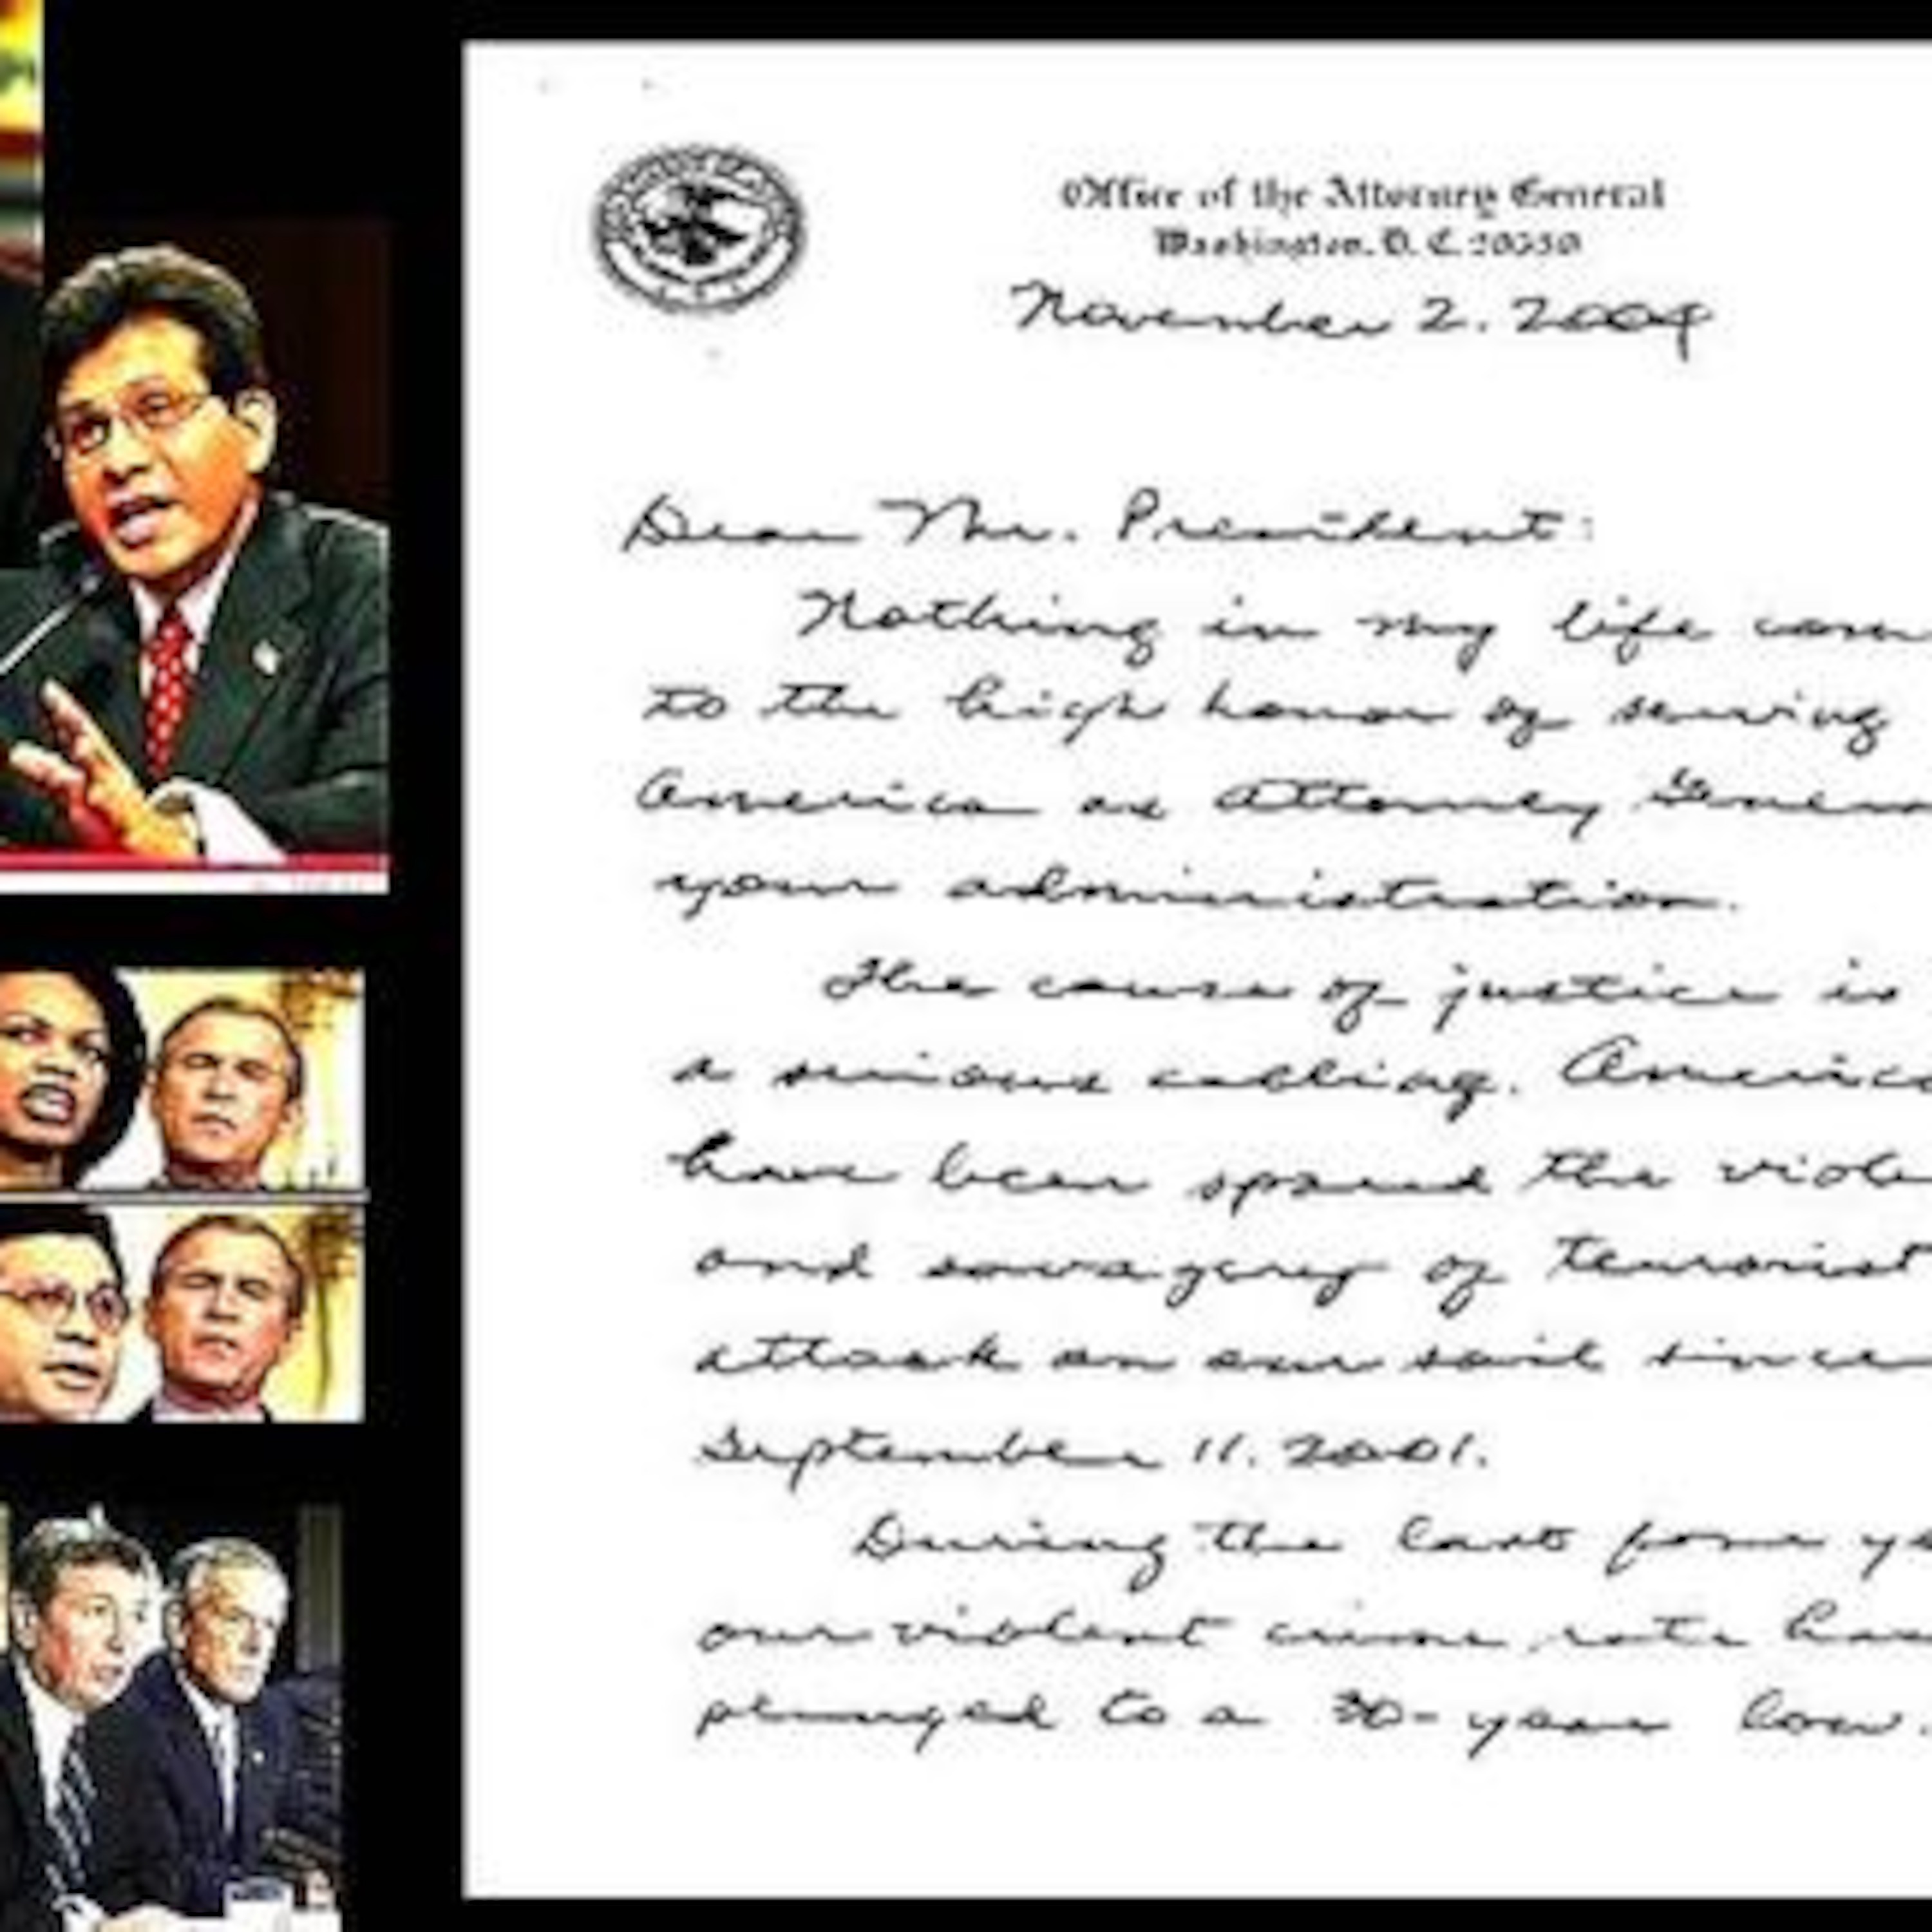 Office of the Attorney General
Washington, D. C. 20530
November 2, 2004
Dear Mr. President:
Nothing in my life com
to the high honor of serving
America as Attorney Gener
your administration.
The cause of justice is
a serious calling. America
have been spared the viole
and savagery of terrorist
attack on our soil since
September 11, 2001.
During the last four ye
our violent crime rate has
plunged to a 30-year low.